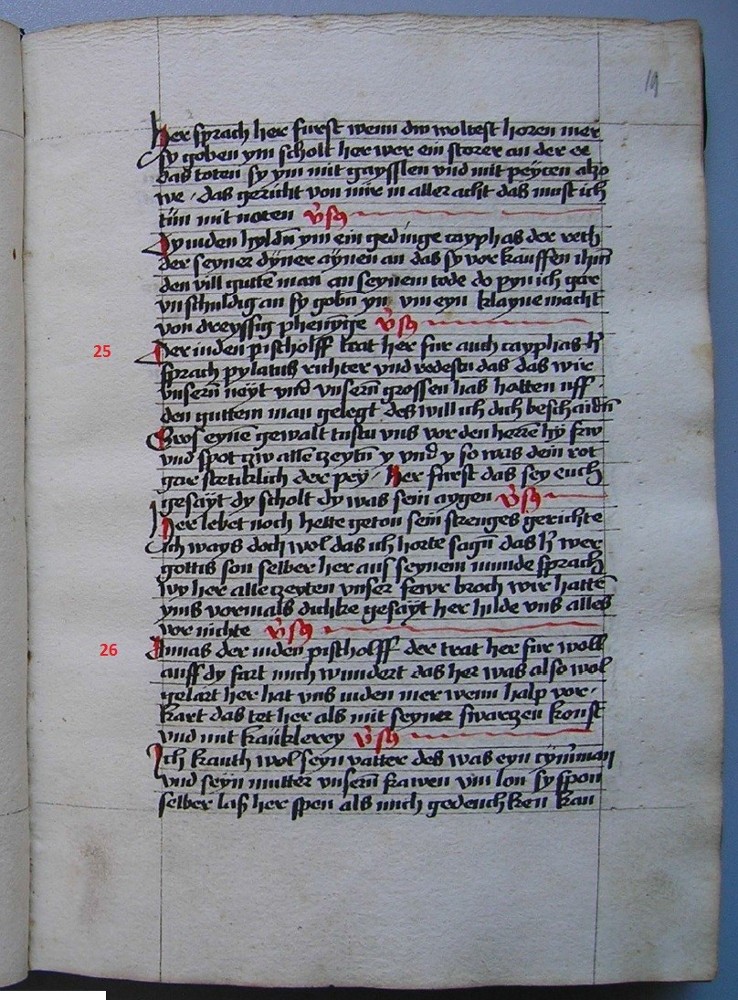 19
her sprach her furst wenn dw woltest horen mer
sy goben ym scholt her wer ein storer an der ee
das toten sy ym mit gaysslen vnd mit peyten also
we · das gericht von mir in aller acht das must ich
tün mit noten v̉sꝯ
Dy iuden hyldn̄ ym ein gedinge cayphas der reth
der seyner dyner aynen an das sy vor kauffen ihm
den vill gutte man an seynem tode do pyn ich gar
vnschuldig an sy gobn̄ ym vm eyn klayne macht
von dreyssig phennige v̉sꝯ
25
Der iuden pischolff trat her fur auch cayphas h̉
sprach pylatus richter vnd redestu das das wir
vnsern̄ neyt vnd vnsern̄ grossen has hatten uff
den guttem man gelegt des will ich dich beschaidn̄
Gros eyne gewalt tustu vns vor den herre hy
vnd spot czw alle czeytn̄ y vnd y so was dein rot
gar stetiklich der pey · Her furst das sey euch
gesayt dy scholt dy was sein aygen v̉sꝯ
Her lebet noch hette geton sein strenges gerichte
Ich ways doch wol das ich horte sagn̄ das h̉ wer
gottis son selber her aus seynem munde sprach
wo her alle czeyten vnser fewr broch wir hatte
yms vormals dicke gesayt her hilde vns alles
vor nichte v̉sꝯ
26
Annas der iuden pischolff der trat her fur woll
auff dy fart mich wundert das her was also wol
gelart her hat vns iuden mer wenn halp vor·
kart das tet her als mit seyner swarczen konst
vnd mit kauklerey v̉sꝯ
Ich kanth wol seyn vatter des was eyn czym̄man
vnd seyn mutter vnsern̄ frawen vm lon sy spon
selber las her spen als mich gedenchken kan